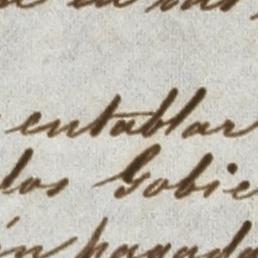 entablar
los Gobie
pagada